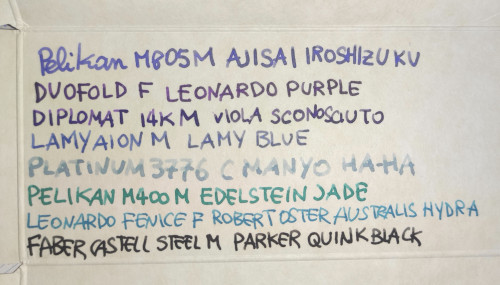 Pelikan M805M AJISAI IROSHIZUKU
DUOFOLD F LEONARDO PURPLE
DIPLOMAT 14K M VIOLA SCONOSCIUTO
LAMY AION M LAMY BLUE
PLATINUM 3776 C MANYO HA-HA
PELIKAN M400 M EDELSTEIN JADE
LEONARDO FENICE F ROBERT OSTER AUSTRALIS HYDRA
FABER CASTELL STEEL M PARKER QUINK BLACK